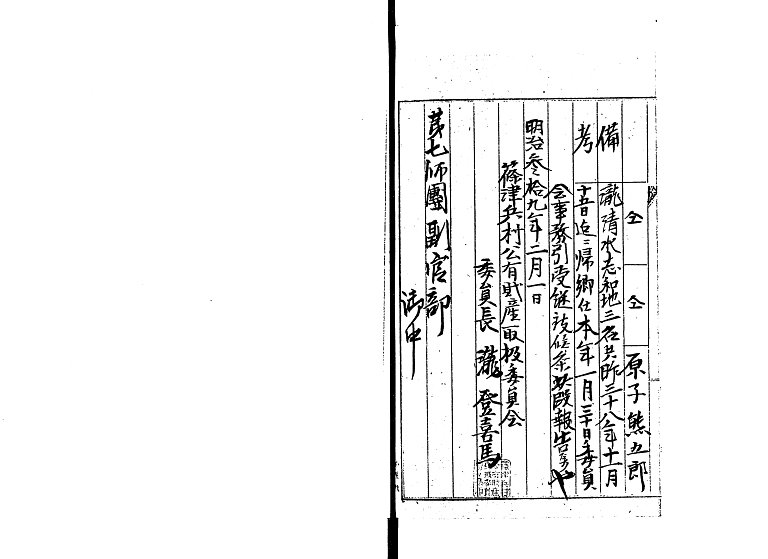 仝 仝 原子熊五郎
備考
瀧清水志和地三名共昨三十八年十一月
十五日迄ニ帰郷仕本年一月三十日委員
会事務引受継致候条此段報告候也
明治参拾九年二月一日
篠津兵村公有財産取扱委員会
委員長 瀧 登喜馬
第七師團副官部
御中